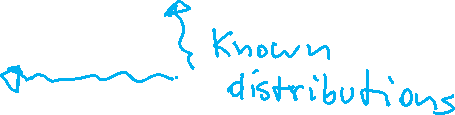 Known
distributions